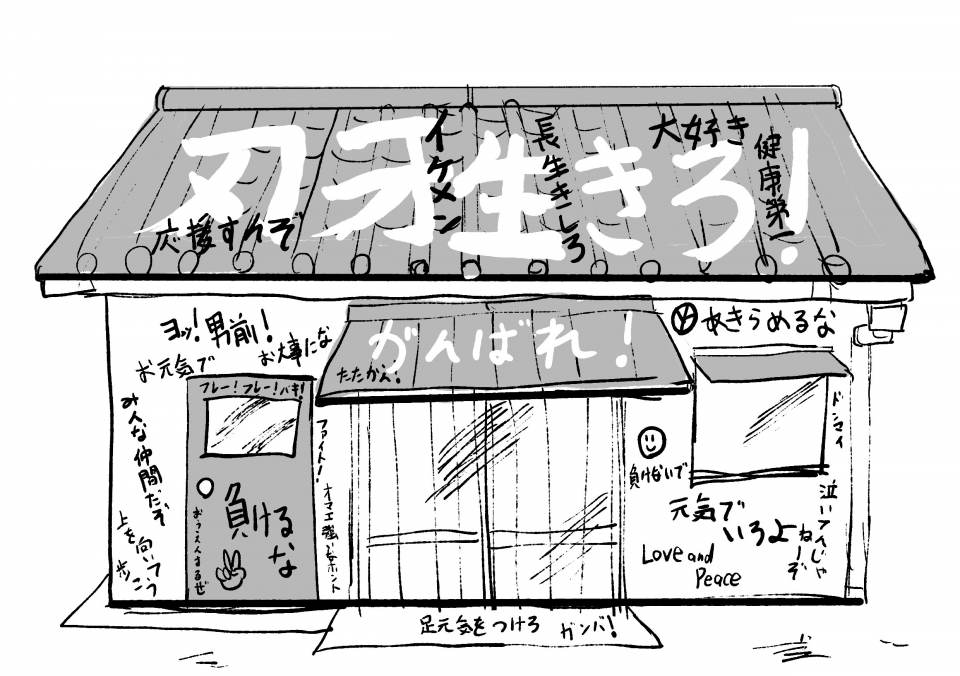 刃牙生きろ!
イケメン
長生きしろ
大好き
健康第一
応援すんぞ
ヨッ!男前!
お大事にな
お元気で
がんばれ!
たたかえ!
あきらめるな
フレー!フレー!バキ!
みんな仲間だぞ
上を向いて
歩こう
負けるな
おうえんするぜ
ファイト!
オマエ強いよホント
負けないで
ドンマイ
元気で
いろよ
泣いてんじゃ
ねーぞ
Love and
Peace
足元気をつけろ
ガンバ!